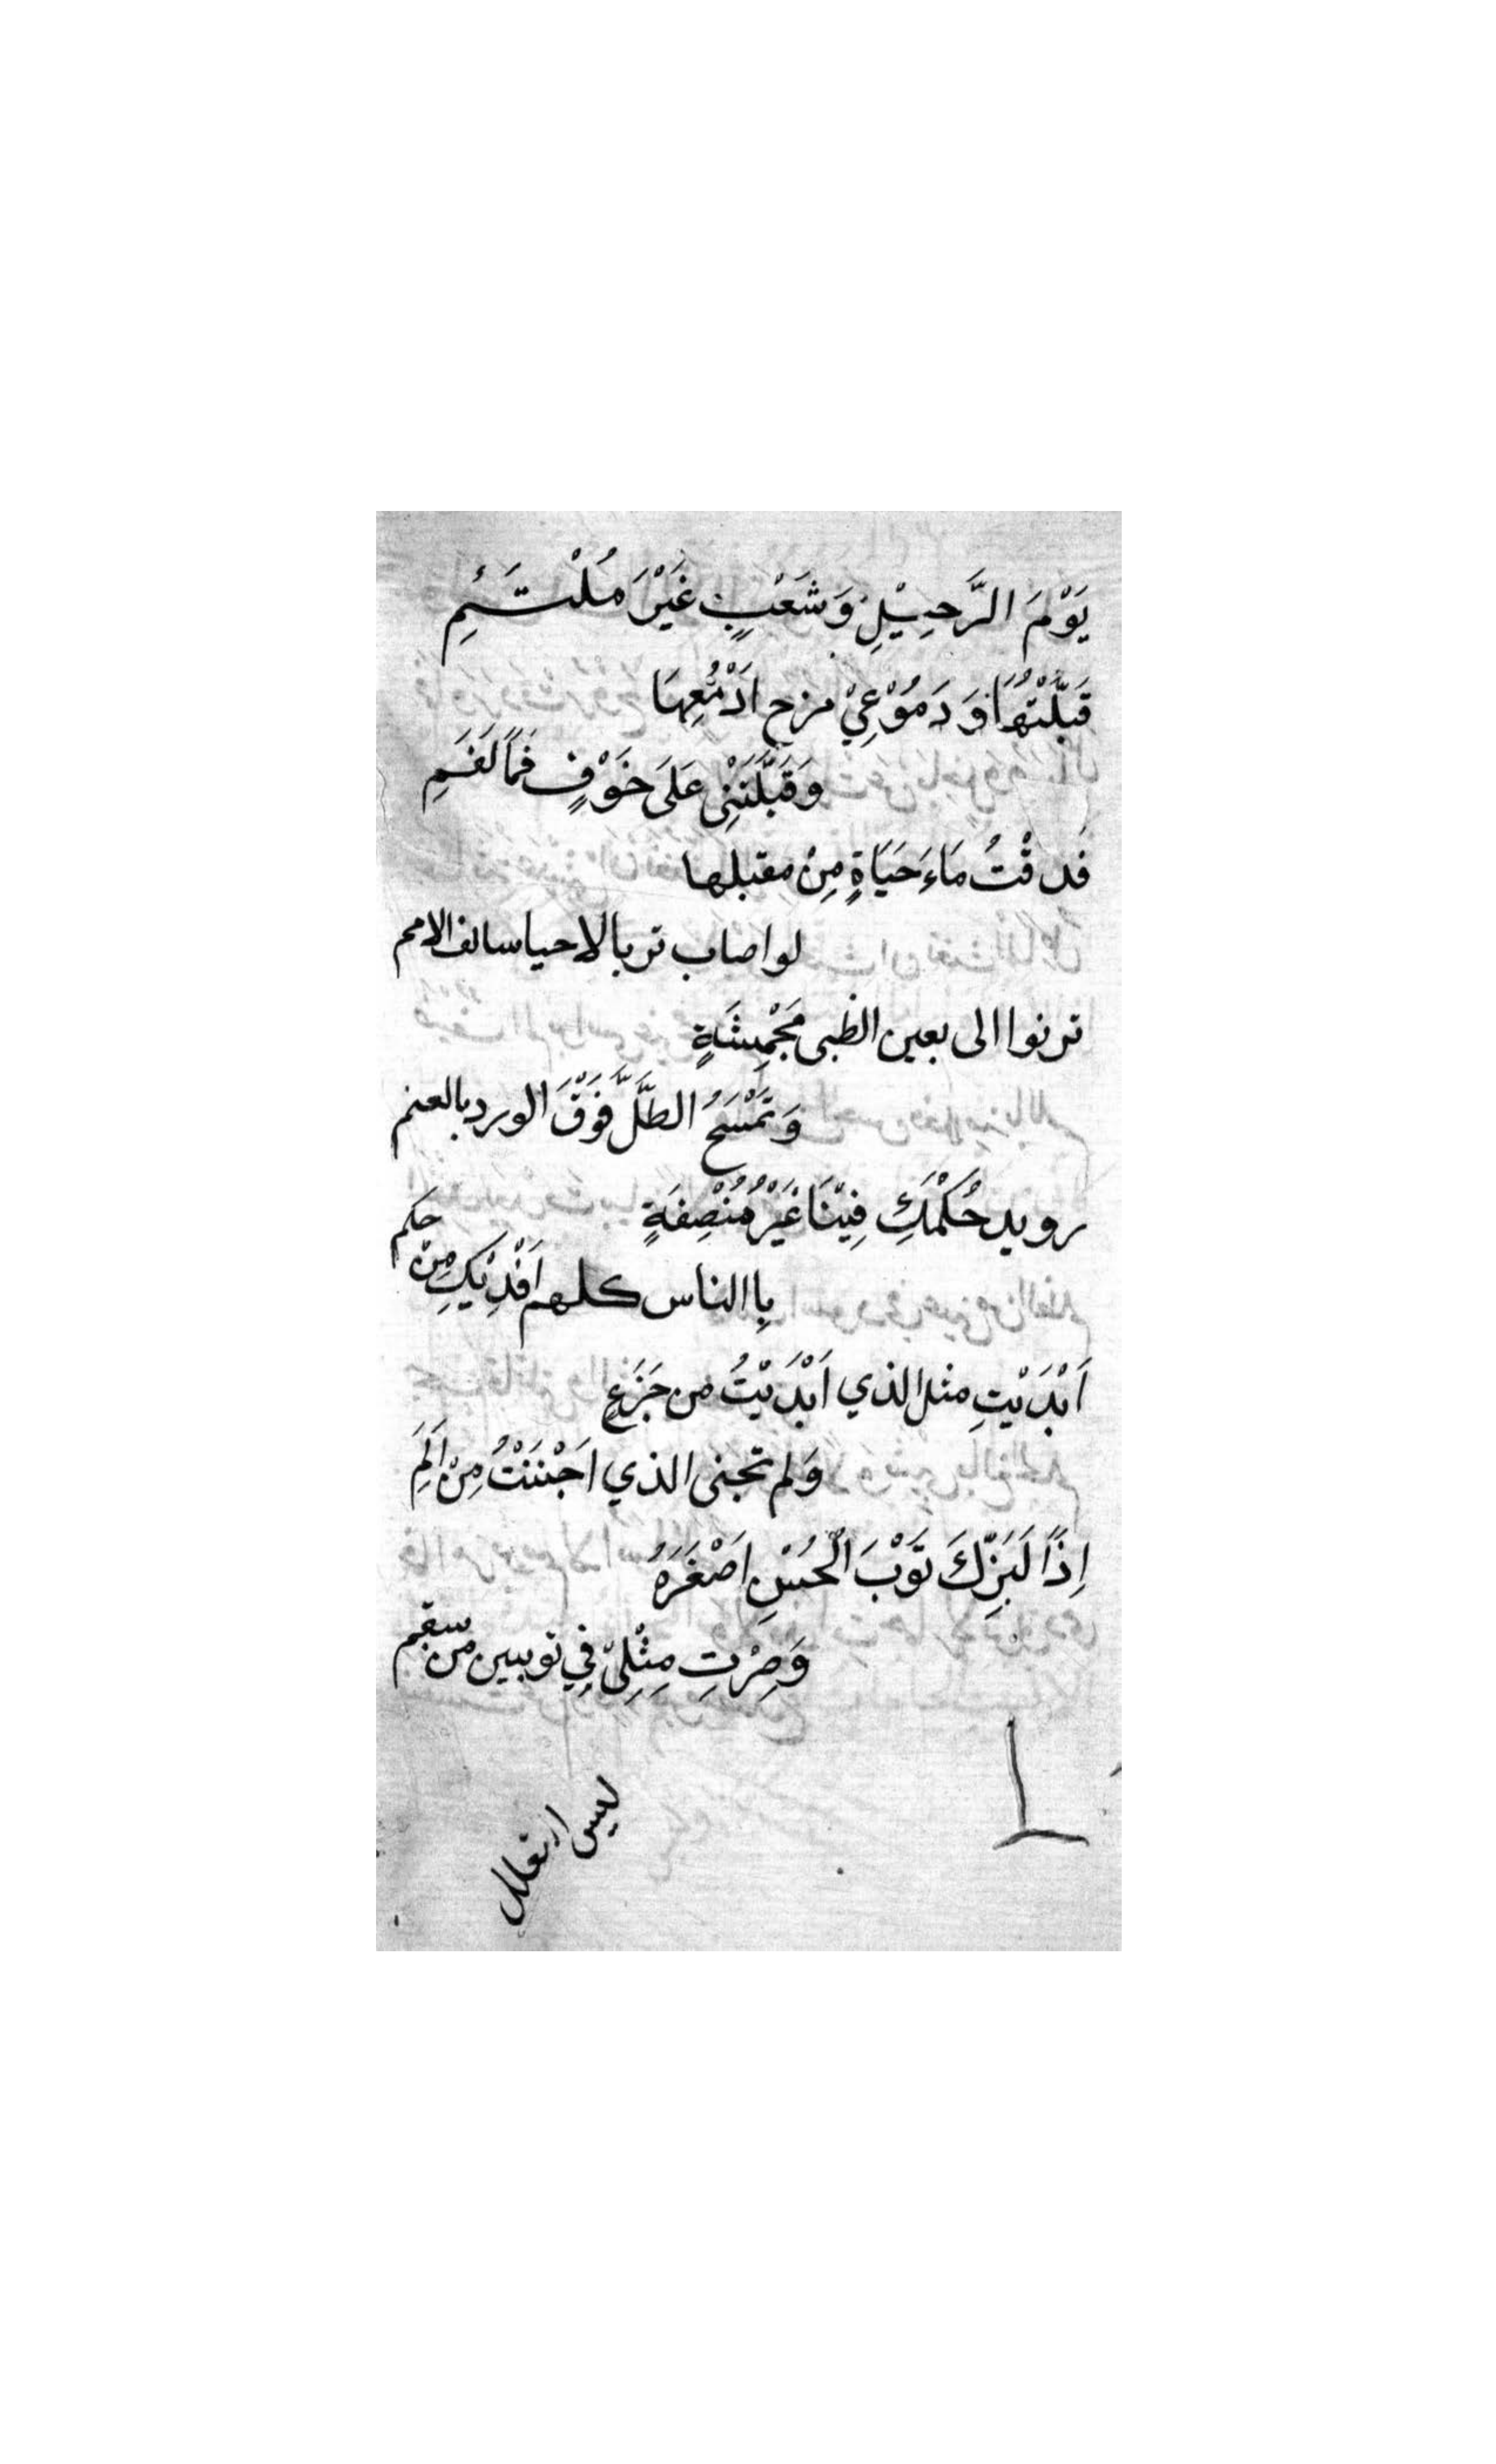 يَوْمَ الرَّحِيْلِ وَشَعْبٍ غَيْرَ مُلْتَئِمِ
قَبَّلْتُهَا وَدَمُوْعِيْ مزح اَدْمُعِهَا
وَقَبَّلَتْنِي عَلَى خَوْفٍ فَمًا لَفَمِ
فَدقْتُ مَاءَ حَيَاةٍ مِنْ مقبلها
لواصاب تربا لاحيا سالف الامم
ترنوا الى بعين الظبى مَجْمِشَةٍ
وَتَمْسَحُ الطَّلَّ فَوْقَ الورد بالعنم
رويد حُكْمَكِ فِيْنَا غَيْرُ مُنْصِفَةٍ
بِاالناس كلهم اَفْدِيْكِ مِنْ حكم
اَبْدَيْتِ مثل الذي اَبْدَيْتُ من جَزَعٍ
وَلم تجنى الذي اَجْنَنْتُ مِنْ اَلَمِ
اِذًا لَبَزِّكَ ثَوْبَ الْحُسْنِ اَصْغَرَهُ
وَصِرْتِ مِثْلِيْ فِي ثوبين من سقم
ليس التعلل